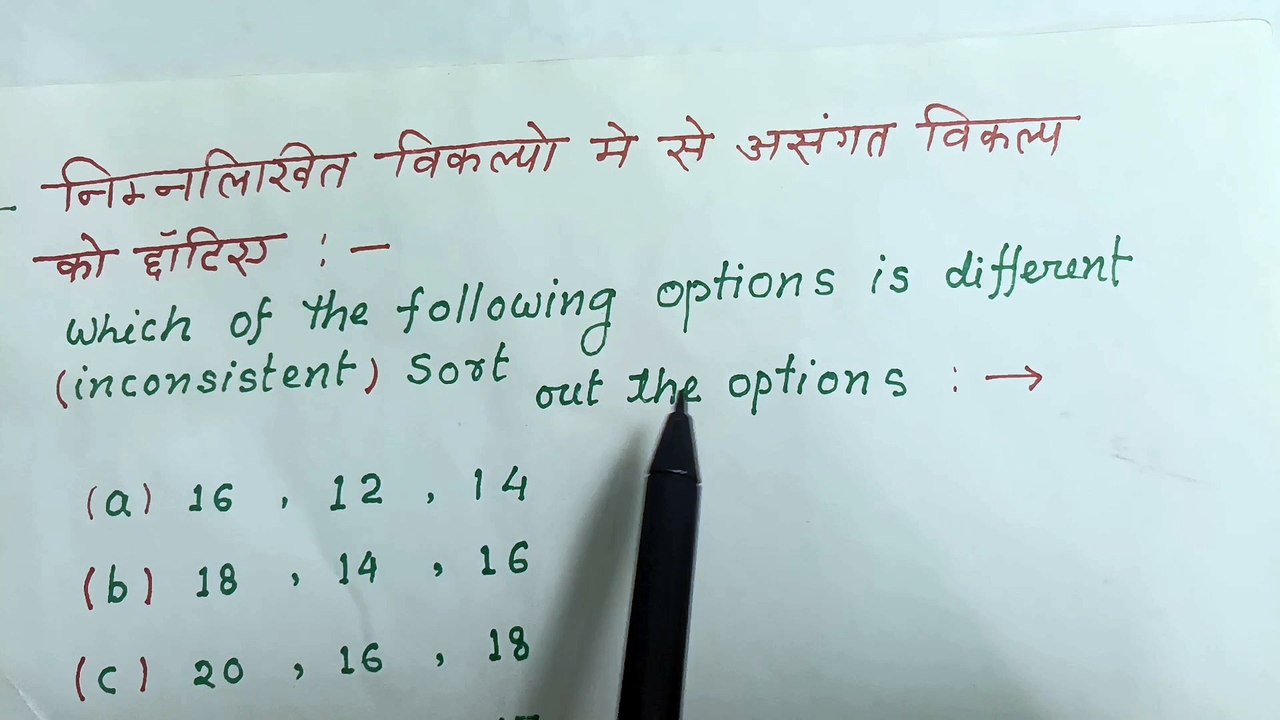 निम्नलिखित विकल्पो मे से असंगत विकल्प
को छाँटिए : -
which of the following options is different
(inconsistent) sort out the options : →
(a) 16 , 12 , 14
(b) 18 , 14 , 16
(c) 20 , 16 , 18